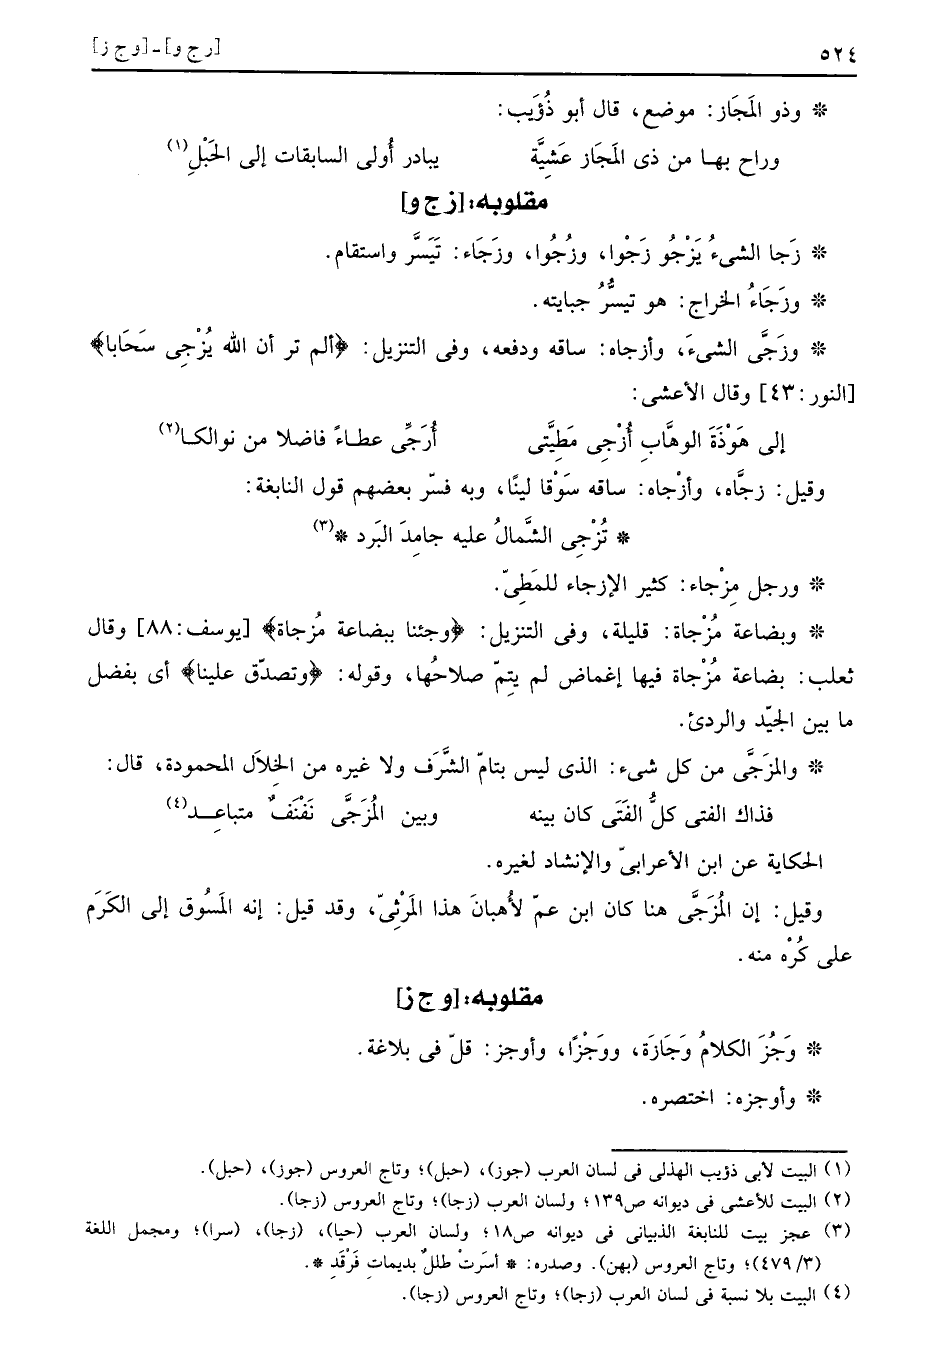 ٥٢٤ [رج و]-[وج ز]
* وذو المَجَاز: موضع، قال أبو ذُؤَيب:
وراح بهـا من ذى المَجَاز عَشِيَّة يبادر أُولى السابقات إلى الحَبْلِ(١)
مقلوبه: [زج و]
* زَجا الشىءُ يَزْجُو زَجْوا، وزُجُوا، وزَجَاء: تَيَسَّر واستقام.
* وزَجَاءُ الخراج: هو تيسُّرُ جبايته.
* وزَجَّى الشىءَ، وأزجاه: ساقه ودفعه، وفى التنزيل: ﴿ألم تر أن الله يُزْجِى سَحَابا﴾
[النور: ٤٣] وقال الأعشى:
إلى هَوْذَةَ الوهَّابِ أُزْجِى مَطِيَّتى أُرَجِّى عطـاءً فاضلا من نوالكـا(٢)
وقيل: زجَّاه، وأزْجاه: ساقه سَوْقا لينًا، وبه فسّر بعضهم قول النابغة:
* تُزْجِى الشَّمالُ عليه جامِدَ البَرد *(٣)
* ورجل مِزْجاء: كثير الإزجاء للمَطِىّ.
* وبضاعة مُزْجاة: قليلة، وفى التنزيل: ﴿وجئنا ببضاعة مُزجاة﴾ [يوسف: ٨٨] وقال
ثعلب: بضاعة مُزْجاة فيها إغماض لم يتِمّ صلاحُها، وقوله: ﴿وتصدّق علينا﴾ أى بفضل
ما بين الجيّد والردئ.
* والمزَجَّى من كل شىء: الذى ليس بتامّ الشَّرَف ولا غيره من الخِلاَل المحمودة، قال:
فذاك الفتى كلُّ الفَتَى كان بينه وبين المُزَجَّى نَفْنَفٌ متباعِـــد(٤)
الحكاية عن ابن الأعرابىّ والإنشاد لغيره.
وقيل: إن المُزَجَّى هنا كان ابن عمّ لأُهبانَ هذا المَرْثِىّ، وقد قيل: إنه المَسُوق إلى الكَرَم
على كُرْه منه.
مقلوبه: [وج ز]
* وَجُزَ الكلامُ وَجَازَة، ووَجْزًا، وأوجز: قلّ فى بلاغة.
* وأوجزه: اختصره.
(١) البيت لأبى ذؤيب الهذلى فى لسان العرب (جوز)، (حبل)؛ وتاج العروس (جوز)، (حبل).
(٢) البيت للأعشى فى ديوانه ص١٣٩؛ ولسان العرب (زجا)؛ وتاج العروس (زجا).
(٣) عجز بيت للنابغة الذبيانى فى ديوانه ص١٨؛ ولسان العرب (حيا)، (زجا)، (سرا)؛ ومجمل اللغة
(٤٧٩/٣)؛ وتاج العروس (بهن). وصدره: * أسَرتْ طللٌ بديماتِ فَرْقَدِ *.
(٤) البيت بلا نسبة فى لسان العرب (زجا)؛ وتاج العروس (زجا).